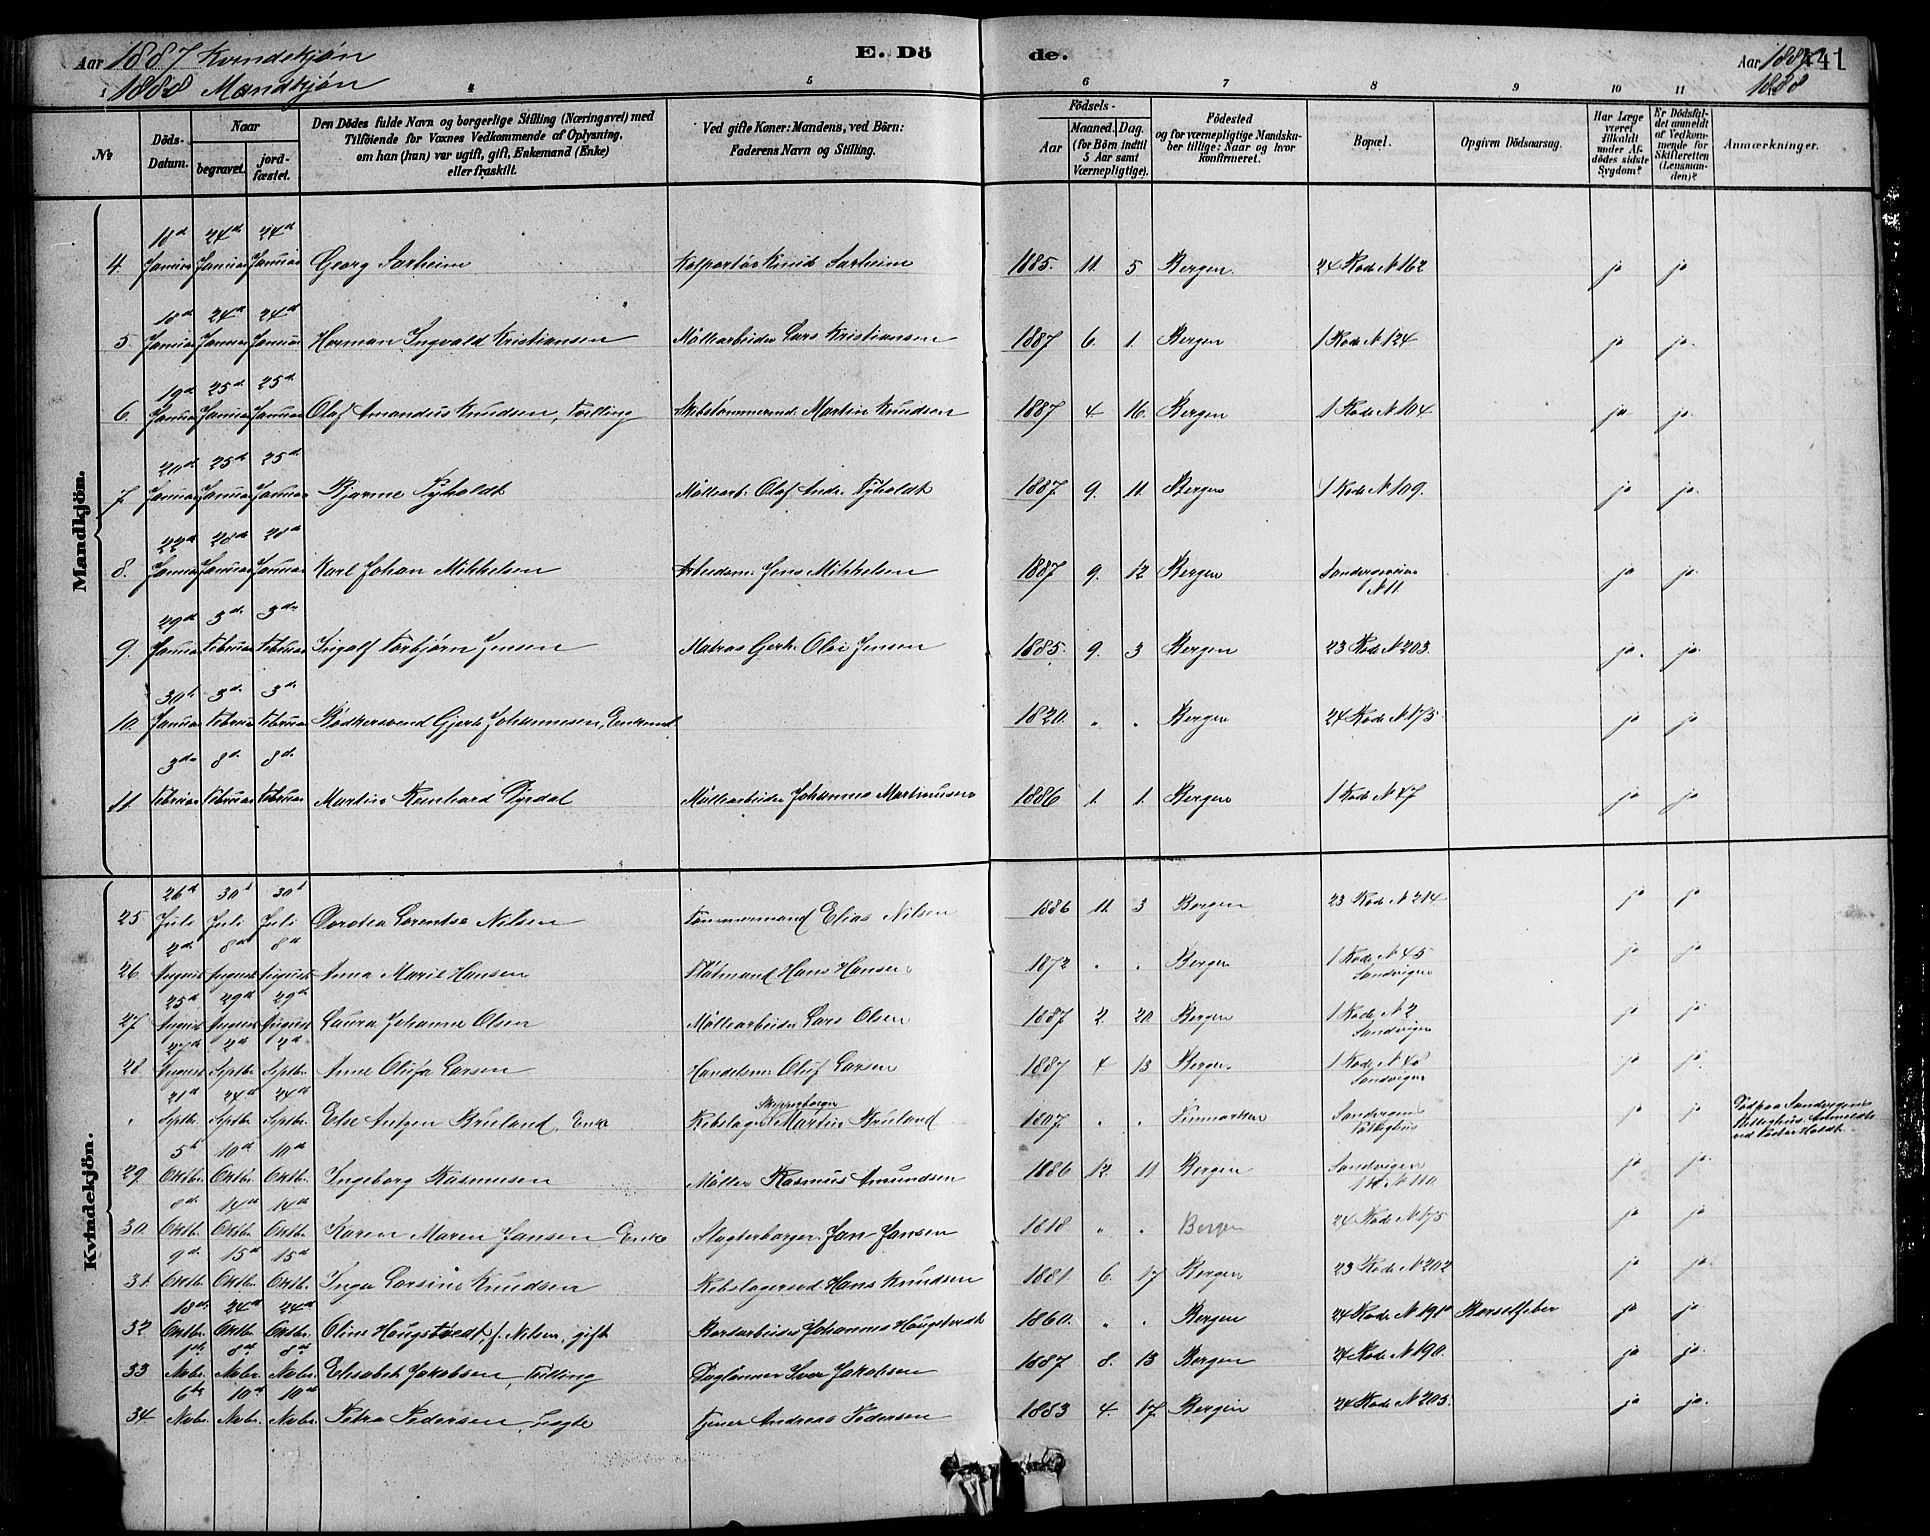 Aar 1887 Kvindekjön E. Dö de. Aar 1887 441
1888 Mandkjön 1888
1 4 5 6 7 8 9 10 11
No. Döds-Datum. Naar begravet. jordfæstet. Den Dödes fulde Navn og borgerlige Stilling (Næringsvei) med Tilföiende for Voxnes Vedkommende af Oplysning, om han (hun) var ugift, gift, Enkemand (Enke) eller fraskilt. Ved gifte Koner: Mandens, ved Børn: Faderens Navn og Stilling. Födsels- Aar Maaned. Dag. (for Börn indtil 5 Aar samt Værnepligtige). Födested og for værnepligtige Mandskaber tillige: Naar og hvor konfirmeret. Bopæl. Opgiven Dödsaarsag. Har Læge været tilkaldt under Afdödes sidste Sygdom? Er Dödsfaldet anmeldt af Vedkommende for Skifteretten (Lensmanden)? Anmærkninger.
Mandkjön.
4. 18de Januar 24de Januar 24de Januar Georg Sarheim Kolportör Knud Sarheim 1885. 11. 5 Bergen. 24 Rode N 162 ja ja
5. 18de Januar 24de Januar 24de Januar Herman Ingvald Kristiansen Möllearbeider Lars Kristiansen 1887 6. 1. Bergen 1 Rode N 124 ja ja
6. 19de Januar 25de Januar 25de Januar Olaf Amandus Knudsen, Tvilling Skibstömmermd. Martin Knudsen 1887 4 16. Bergen 1 Rode N 104 ja ja
7. 20de Januar 25de Januar 25de Januar Bjarne Tyholdt Möllearb. Olaf Andr. Tyholdt 1887 9. 11. Bergen 1 Rode N 109. ja ja
8. 22de Januar 28de Januar 28de Januar Karl Johan Mikkelsen Arbeidsm. Jens Mikkelsen 1887 9. 12 Bergen N 11. ja ja
9. 29de Januar 3de Februar 3de Februar Ingolf Torbjörn Jensen Matros Gerh. Olai Jensen 1885. 9. 3 Bergen 23 Rode N 203. ja ja
10. 30te Januar 3de Februar 3de Februar Bödkersvend Gjert Johannesen, Enkemd. 1820. " " Bergen 24 Rode N 175 ja ja
11. 3de Februar 8de Februar 8de Februar Martin Reinhard Tyrdal Möllearbeider Johannes Martinusen 1886 1. 1. Bergen 1 Rode N 47 ja ja
Kvindekjön.
25 26de Juli 30te Juli 30te Juli Dorotea Lorentse Nilsen Tömmermand Elias Nilsen 1886 11. 3 Bergen 23 Rode N 214 ja ja
26. 2de August 8de August 8de August Anna Marie Hansen Flötmand Hans Hansen 1872 " " Bergen 1 Rode N 45 Sandvigen ja ja
27 25de August 29de August 29de August Laura Johanne Olsen Möllearbeider Lars Olsen 1887 2. 20. Bergen 1 Rode N 2 Sandvigen ja ja
28. 27de August 2de Septbr. 2de Septbr. Anne Olufa Larsen Handelsm. Oluf Larsen 1887 4 13 Bergen. 1 Rode N 48 Sandvigen ja ja
" 21de Septbr. 24de Septbr. 24de Septbr. Else Antzen Bruland, Enke Rebslager Skipperborger Martin Bruland 1807 " " Finmarken Sandvigens Pleieghus ja ja Död paa Sandvigens Pleiestighus. Anmeldt ved Pastor Holdt.
29 5te Oktbr. 10de Oktbr. 10de Oktbr. Ingeborg Rasmusen Möller Rasmus Amundsen 1886 12. 11 Bergen Sandvigen 1 R N 110 ja ja
30. 8de Oktbr. 14de Oktbr. 14de Oktbr. Karen Maren Jansen Enke Slagterborger Jan Jansen 1818 " " Bergen 24 Rode N 175 ja ja
31. 9de Oktbr. 15de Oktbr. 15de Oktbr. Inga Larsine Knudsen Rebslagersvd. Hans Knudsen 1881. 6. 17 Bergen 23 Rode N 202 ja ja
32 18de Oktbr. 24de Oktbr. 24de Oktbr. Oline Haugstvedt, f. Nilsen, gift Havarbeider Johannes Haugstvedt 1860. " " Bergen 24 Rode N 191a Barselfeber ja ja
33 1ste Novbr. 8de Novbr. 8de Novbr. Elisabet Jakobsen, Tvilling Daglönner Iver Jakobsen 1887 8. 13 Bergen 24 Rode N 190. ja ja
34. 6te Novbr. 10de Novbr. 10de Novbr. Petra Pedersen, Tjener Andreas Pedersen 1883 4. 17. Bergen 24 Rode N 205. ja ja